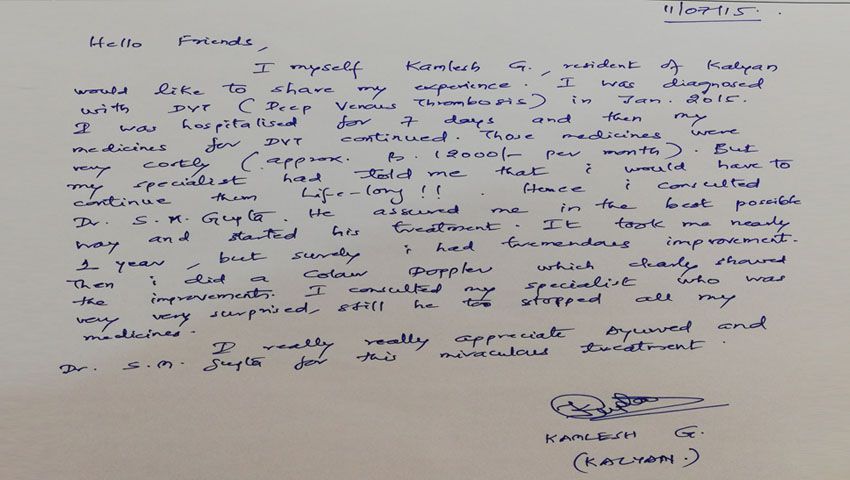 11/07/15.
Hello Friends,
I myself Kamlesh G., resident of Kalyan
would like to share my experience. I was diagnosed
with DVT (Deep Venous Thrombosis) in Jan. 2015.
I was hospitalised for 7 days and then my
medicines for DVT continued. Those medicines were
very costly (approx. Rs. 12000/- per month). But
my specialist had told me that i would have to
continue them life-long!! Hence i consulted
Dr. S.M. Gupta. He assured me in the best possible
way and started his treatment. It took me nearly
1 year, but surely i had tremendous improvement.
Then i did a Colour Doppler which clearly showed
the improvements. I consulted my specialist who was
very very surprised, still he too stopped all my
medicines.
I really really appreciate Ayurved and
Dr. S.M. Gupta for this miraculous treatment.
KAMLESH G.
(KALYAN.)